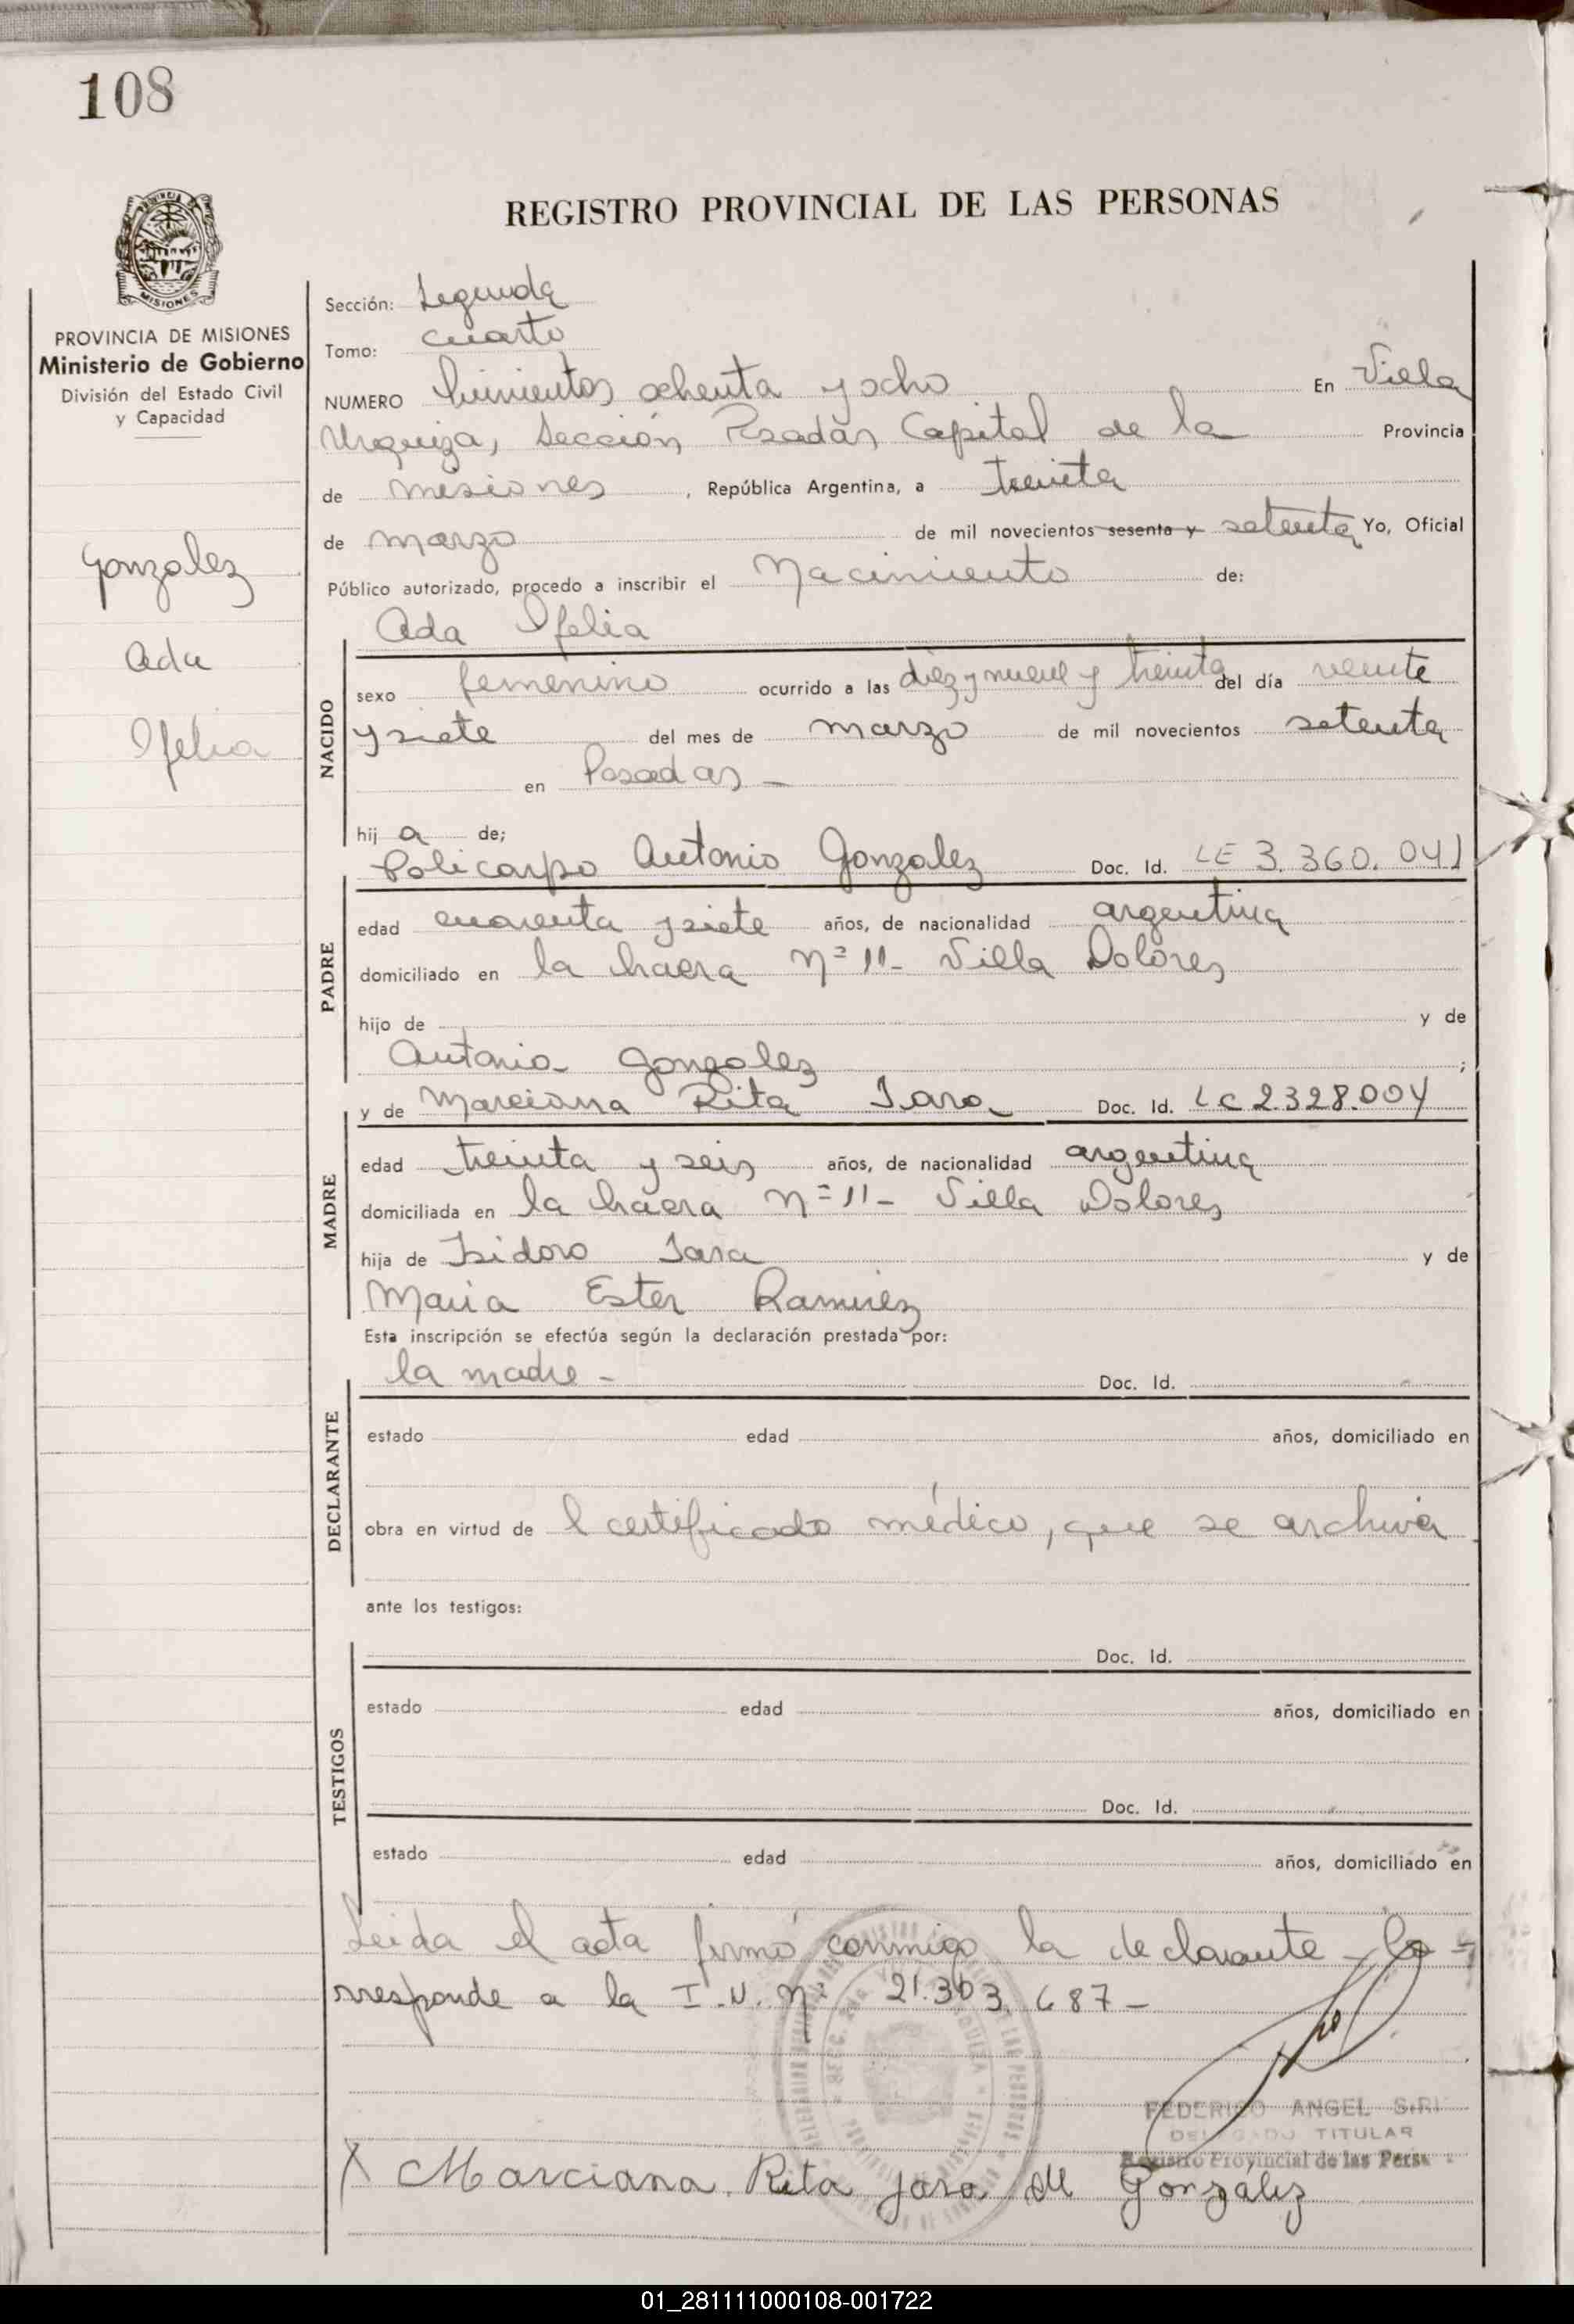 108
REGISTRO PROVINCIAL DE LAS PERSONAS
MISIONES
PROVINCIA DE MISIONES
Ministerio de Gobierno
División del Estado Civil
y Capacidad
Gonzalez
Ada
Ofelia
Sección: Segunda
Tomo: cuarto
NUMERO Quinientos ochenta y ocho En Villa
Urquiza, Sección Posadas Capital de la Provincia
de misiones, República Argentina, a treinta
de marzo de mil novecientos sesenta y setenta Yo, Oficial
Público autorizado, procedo a inscribir el Nacimiento de:
Ada Ofelia
NACIDO
sexo femenino ocurrido a las diez y nueve y treinta del día veinte
y siete del mes de marzo de mil novecientos setenta
en Posadas -
hij a de;
Policarpo Antonio Gonzalez Doc. Id. LE 3.360.041
PADRE
edad cuarenta y siete años, de nacionalidad argentina
domiciliado en la chacra Nº 11- Villa Dolores
hijo de y de
Antonia Gonzalez ;
y de Marciana Rita Jara Doc. Id. LC 2.328.004
MADRE
edad treinta y seis años, de nacionalidad argentina
domiciliada en la chacra Nº 11- Villa Dolores
hija de Isidoro Jara y de
Maria Ester Ramirez
Esta inscripción se efectúa según la declaración prestada por:
la madre - Doc. Id.
DECLARANTE
estado edad años, domiciliado en
obra en virtud de l certificado médico, que se archiva
ante los testigos:
Doc. Id.
TESTIGOS
estado edad años, domiciliado en
Doc. Id.
estado edad años, domiciliado en
Leida el acta firmó conmigo la declarante - Co=
rresponde a la I.N. Nº 21.303.687-
FEDERICO ANGEL
DELEGADO TITULAR
Registro Provincial de las Pers
X Marciana Rita Jara de González
01_281111000108-001722